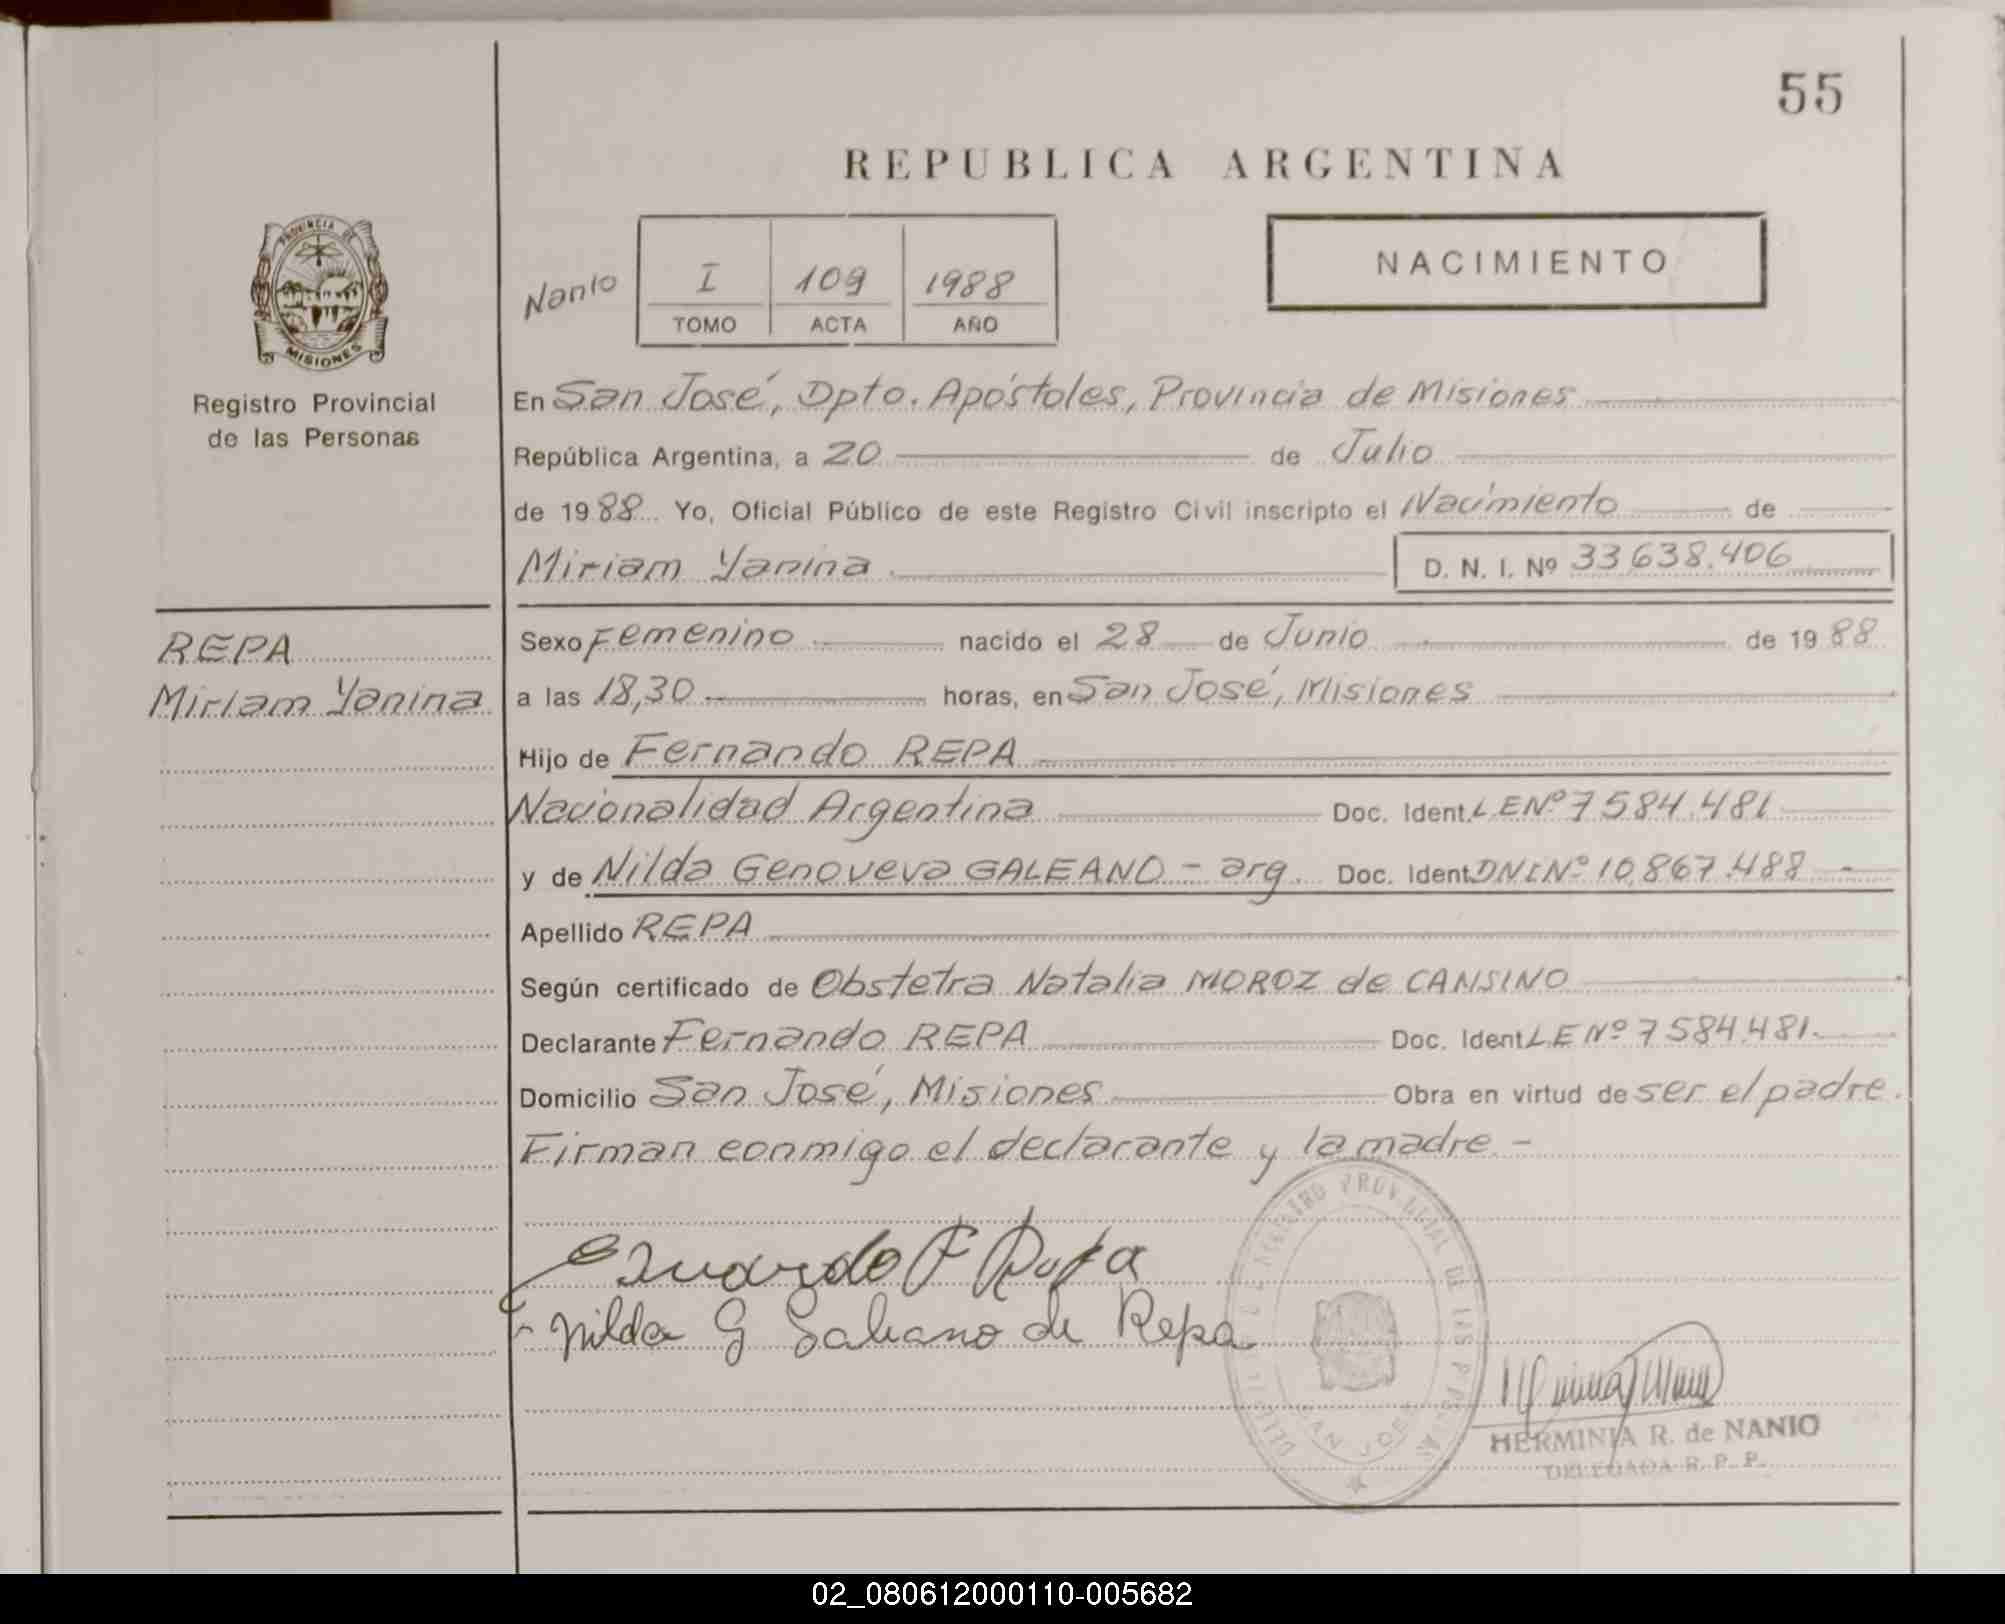 55
REPUBLICA ARGENTINA
PROVINCIA DE
MISIONES
Registro Provincial
de las Personas
Nanio
I 109 1988
TOMO ACTA AÑO
NACIMIENTO
En San José, Dpto. Apóstoles, Provincia de Misiones
República Argentina, a 20 de Julio
de 1988 Yo, Oficial Público de este Registro Civil inscripto el Nacimiento de
Miriam Yanina D. N. I. Nº 33638.406
REPA
Miriam Yanina
Sexo Femenino nacido el 28 de Junio de 1988
a las 18,30 horas, en San José, Misiones
Hijo de Fernando REPA
Nacionalidad Argentina Doc. Ident. LENº 7584.481
y de Nilda Genoveva GALEANO - arg. Doc. Ident DNI Nº 10.867.488 -
Apellido REPA
Según certificado de Obstetra Natalia MOROZ de CANSINO
Declarante Fernando REPA Doc. Ident LE Nº 7584.481.
Domicilio San José, Misiones Obra en virtud de ser el padre.
Firman conmigo el declarante y la madre -
Nilda G Galeano de Repa
REGISTRO PROVINCIAL DE LAS PERSONAS
SAN JOSE
HERMINIA R. de NANIO
DELEGADA R. P. P.
02_080612000110-005682